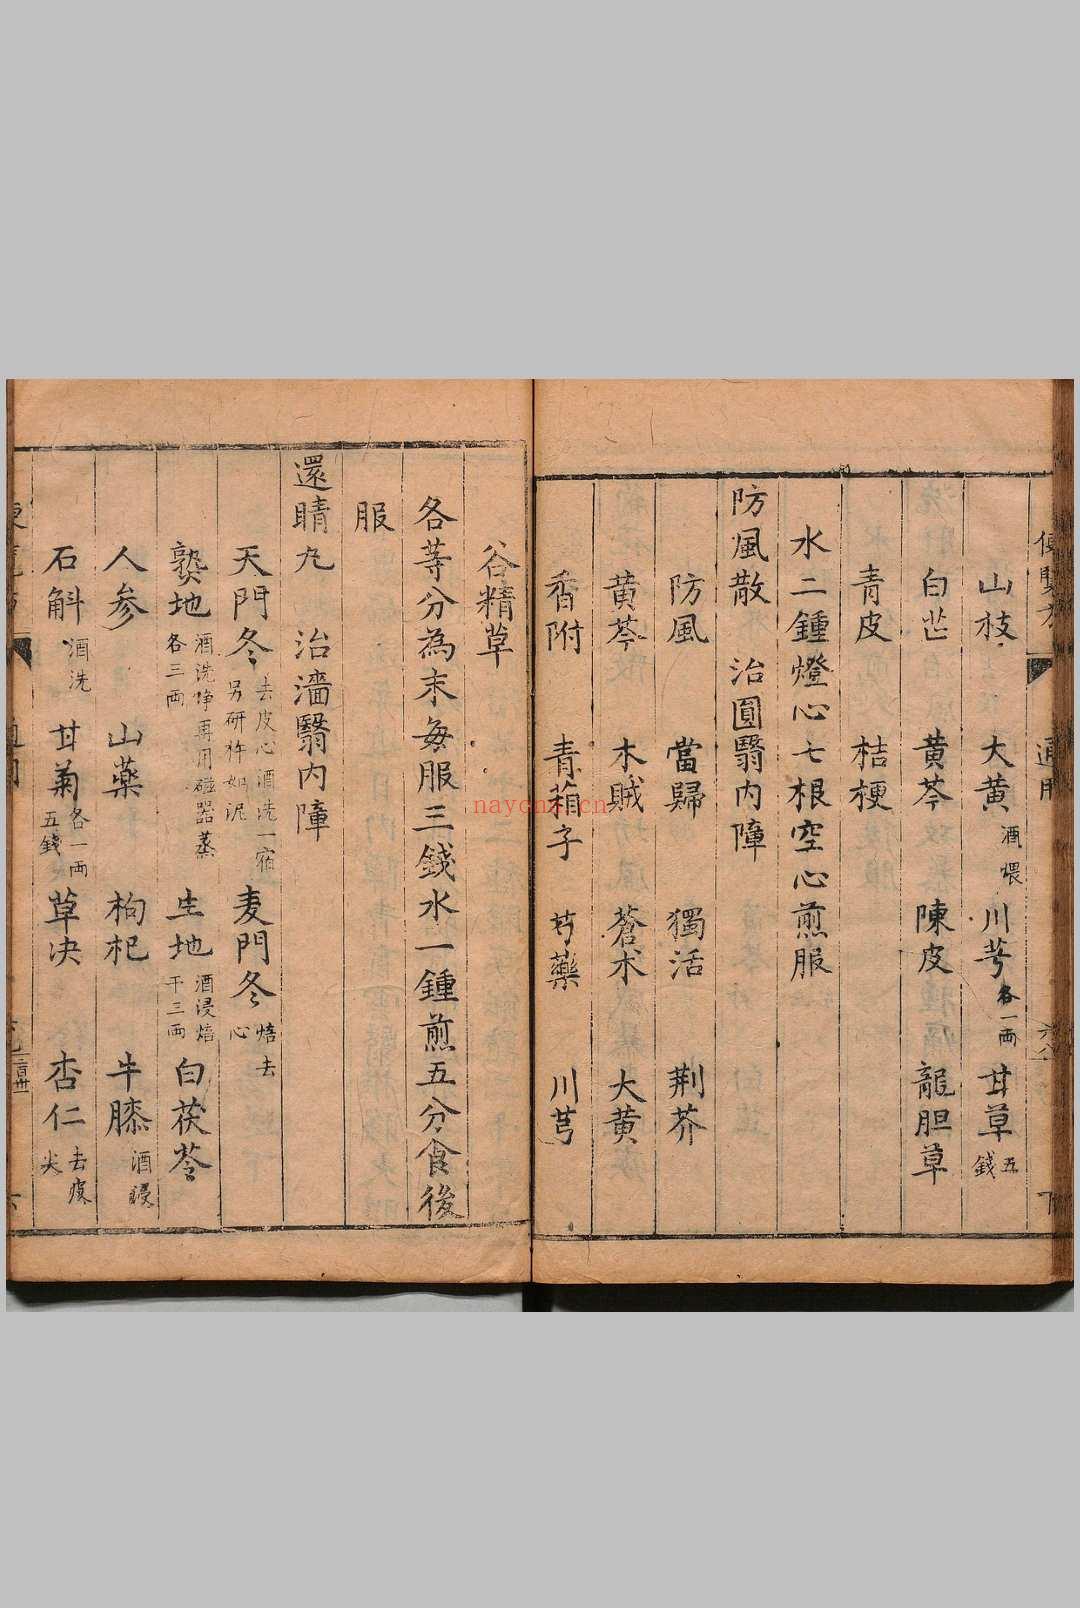 山枝 大黄酒煨 川芎各一両 甘草五錢
白芷 黄芩 陳皮 龍胆草
青皮 桔梗
水二鍾燈心七根空心煎服
防風散 治圓翳内障
防風 當歸 獨活 荆芥
黄芩 木賊 蒼术 大黄
香附 青箱子 芍藥 川芎
谷精草
各等分為末每服三錢水一鍾煎五分食後
服
還睛丸 治濇翳内障
天門冬去皮心酒洗一宿另研杵如泥 麦門冬焙去心
熟地酒洗净再用磁器蒸各三両 生地酒浸焙干三両 白茯苓
人参 山藥 枸杞 牛膝酒浸
石斛酒洗 甘菊各一両五錢 草决 杏仁去皮尖
naycnx.cn